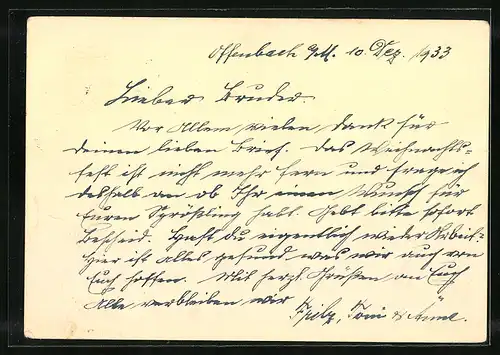 Offenbach a/M. 10. Dez. 1933
Lieber Bruder.
Vor Allem vielen dank für
deinen lieben Brief. Das Weihnachts-
fest ist nicht mehr fern und frage ich
deshalb an ob Ihr einen Wunsch für
Euren Sprößling habt. Gebt bitte sofort
Bescheid. Hast du eigentlich wieder Arbeit.
Hier ist alles gesund, was wir auch von
Euch hoffen. Mit herzl. Grüßen an Euch
Alle verbleiben wir
Fritz, Toni & Änne.